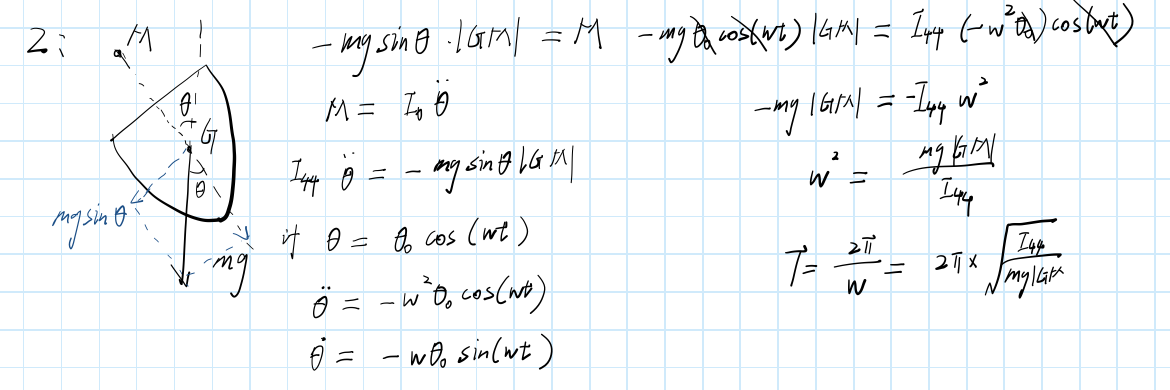 2:
M
θ
G
θ
mg sin θ
mg
- mg sin θ · |GM| = M
M = I₀ θ̈
I₄₄ θ̈ = - mg sin θ |GM|
if θ = θ₀ cos (wt)
θ̈ = - w² θ₀ cos(wt)
θ̇ = - wθ₀ sin(wt)
- mg θ₀ cos(wt) |GM| = I₄₄ (-w² θ₀) cos(wt)
- mg |GM| = -I₄₄ w²
w² = mg|GM| / I₄₄
T = 2π / w = 2π × √(I₄₄ / mg|GM)